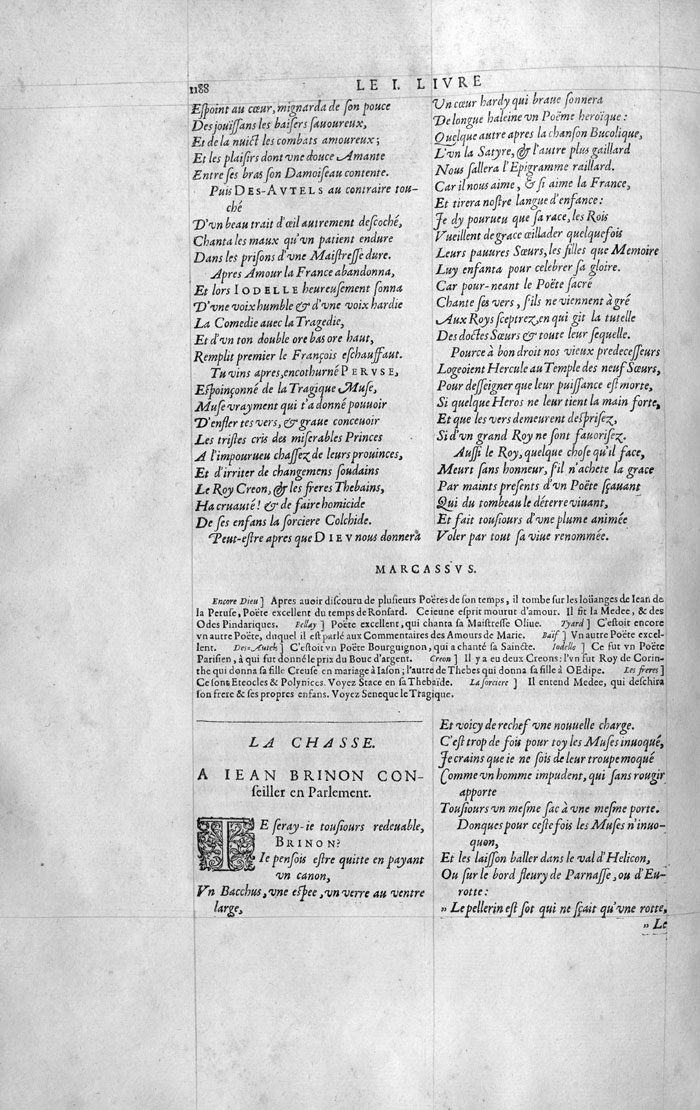 1188
LE I. LIVRE
Eſpoint au cœur, mignarda de ſon pouce
Des jouïſſans les baiſers ſauoureux,
Et de la nuict les combats amoureux;
Et les plaiſirs dont vne douce Amante
Entre ſes bras ſon Damoiſeau contente.
Puis DES-AVTELS au contraire tou-
ché
D'vn beau trait d'œil autrement deſcoché,
Chanta les maux qu'vn patient endure
Dans les priſons d'vne Maiſtreſſe dure.
Apres Amour la France abandonna,
Et lors IODELLE heureuſement ſonna
D'vne voix humble & d'vne voix hardie
La Comedie auec la Tragedie,
Et d'vn ton double ore bas ore haut,
Remplit premier le François eſchauffaut.
Tu vins apres, encothurné PERVSE,
Eſpoinçonné de la Tragique Muſe,
Muſe vrayment qui t'a donné pouuoir
D'enfler tes vers, & graue conceuoir
Les triſtes cris des miſerables Princes
A l'impourueu chaſſez de leurs prouinces,
Et d'irriter de changemens ſoudains
Le Roy Creon, & les freres Thebains,
Ha cruauté! & de faire homicide
De ſes enfans la ſorciere Colchide.
Peut-eſtre apres que DIEV nous donnera
Vn cœur hardy qui braue ſonnera
De longue haleine vn Poëme heroïque:
Quelque autre apres la chanſon Bucolique,
L'vn la Satyre, & l'autre plus gaillard
Nous ſallera l'Epigramme raillard.
Car il nous aime, & ſi aime la France,
Et tirera noſtre langue d'enfance:
Je dy pourueu que ſa race, les Rois
Vueillent de grace œillader quelquefois
Leurs pauures Sœurs, les filles que Memoire
Luy enfanta pour celebrer ſa gloire.
Car pour-neant le Poëte ſacré
Chante ſes vers, s'ils ne viennent à gré
Aux Roys ſceptrez, en qui git la tutelle
Des doctes Sœurs & toute leur ſequelle.
Pource à bon droit nos vieux predeceſſeurs
Logeoient Hercule au Temple des neuf Sœurs,
Pour deſſeigner que leur puiſſance eſt morte,
Si quelque Heros ne leur tient la main forte,
Et que les vers demeurent deſpriſez,
Si d'vn grand Roy ne ſont fauoriſez.
Auſſi le Roy, quelque choſe qu'il face,
Meurt ſans honneur, s'il n'achete la grace
Par maints preſents d'vn Poëte ſçauant
Qui du tombeau le déterre viuant,
Et fait touſiours d'vne plume animée
Voler par tout ſa viue renommée.
MARCASSVS.
Encore Dieu] Apres auoir diſcouru de pluſieurs Poëtes de ſon temps, il tombe ſur les loüanges de Iean de
la Peruſe, Poëte excellent du temps de Ronſard. Ce ieune eſprit mourut d'amour. Il fit la Medee, & des
Odes Pindariques. Bellay] Poëte excellent, qui chanta ſa Maiſtreſſe Oliue. Tyard] C'eſtoit encore
vn autre Poëte, duquel il eſt parlé aux Commentaires des Amours de Marie. Baïf] Vn autre Poëte excel-
lent. Des-Autels] C'eſtoit vn Poëte Bourguignon, qui a chanté ſa Saincte. Iodelle] Ce fut vn Poëte
Pariſien, à qui fut donné le prix du Bouc d'argent. Creon] Il y a eu deux Creons: l'vn fut Roy de Corin-
the qui donna ſa fille Creuſe en mariage à Iaſon; l'autre de Thebes qui donna ſa fille à OEdipe. Les freres]
Ce ſont Eteocles & Polynices. Voyez Stace en ſa Thebaïde. La ſorciere] Il entend Medee, qui deſchira
ſon frere & ſes propres enfans. Voyez Seneque le Tragique.
LA CHASSE.
A IEAN BRINON CON-
ſeiller en Parlement.
TE ſeray-ie touſiours redeuable,
BRINON?
Ie penſois eſtre quitte en payant
vn canon,
Vn Bacchus, vne eſpee, vn verre au ventre
large,
Et voicy de rechef vne nouuelle charge.
C'eſt trop de fois pour toy les Muſes inuoqué,
Je crains que ie ne ſois de leur troupe moqué
Comme vn homme impudent, qui ſans rougir
apporte
Touſiours vn meſme ſac à vne meſme porte.
Donques pour ceſte fois les Muſes n'inuo-
quon,
Et les laiſſon baller dans le val d'Helicon,
Ou ſur le bord fleury de Parnaſſe, ou d'Eu-
rotte:
» Le pellerin eſt ſot qui ne ſçait qu'vne rotte,
» Le